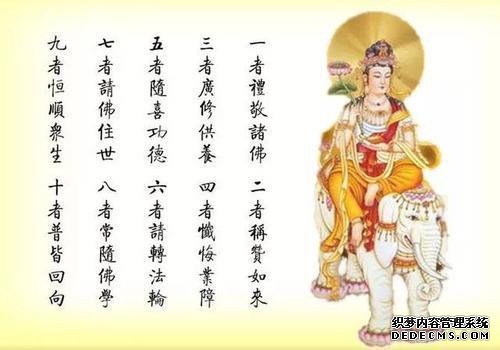 一者禮敬諸佛
二者稱贊如來
三者廣修供養
四者懺悔業障
五者隨喜功德
六者請轉法輪
七者請佛住世
八者常隨佛學
九者恒順衆生
十者普皆回向
织梦内容管理系统
DEDECMS.COM